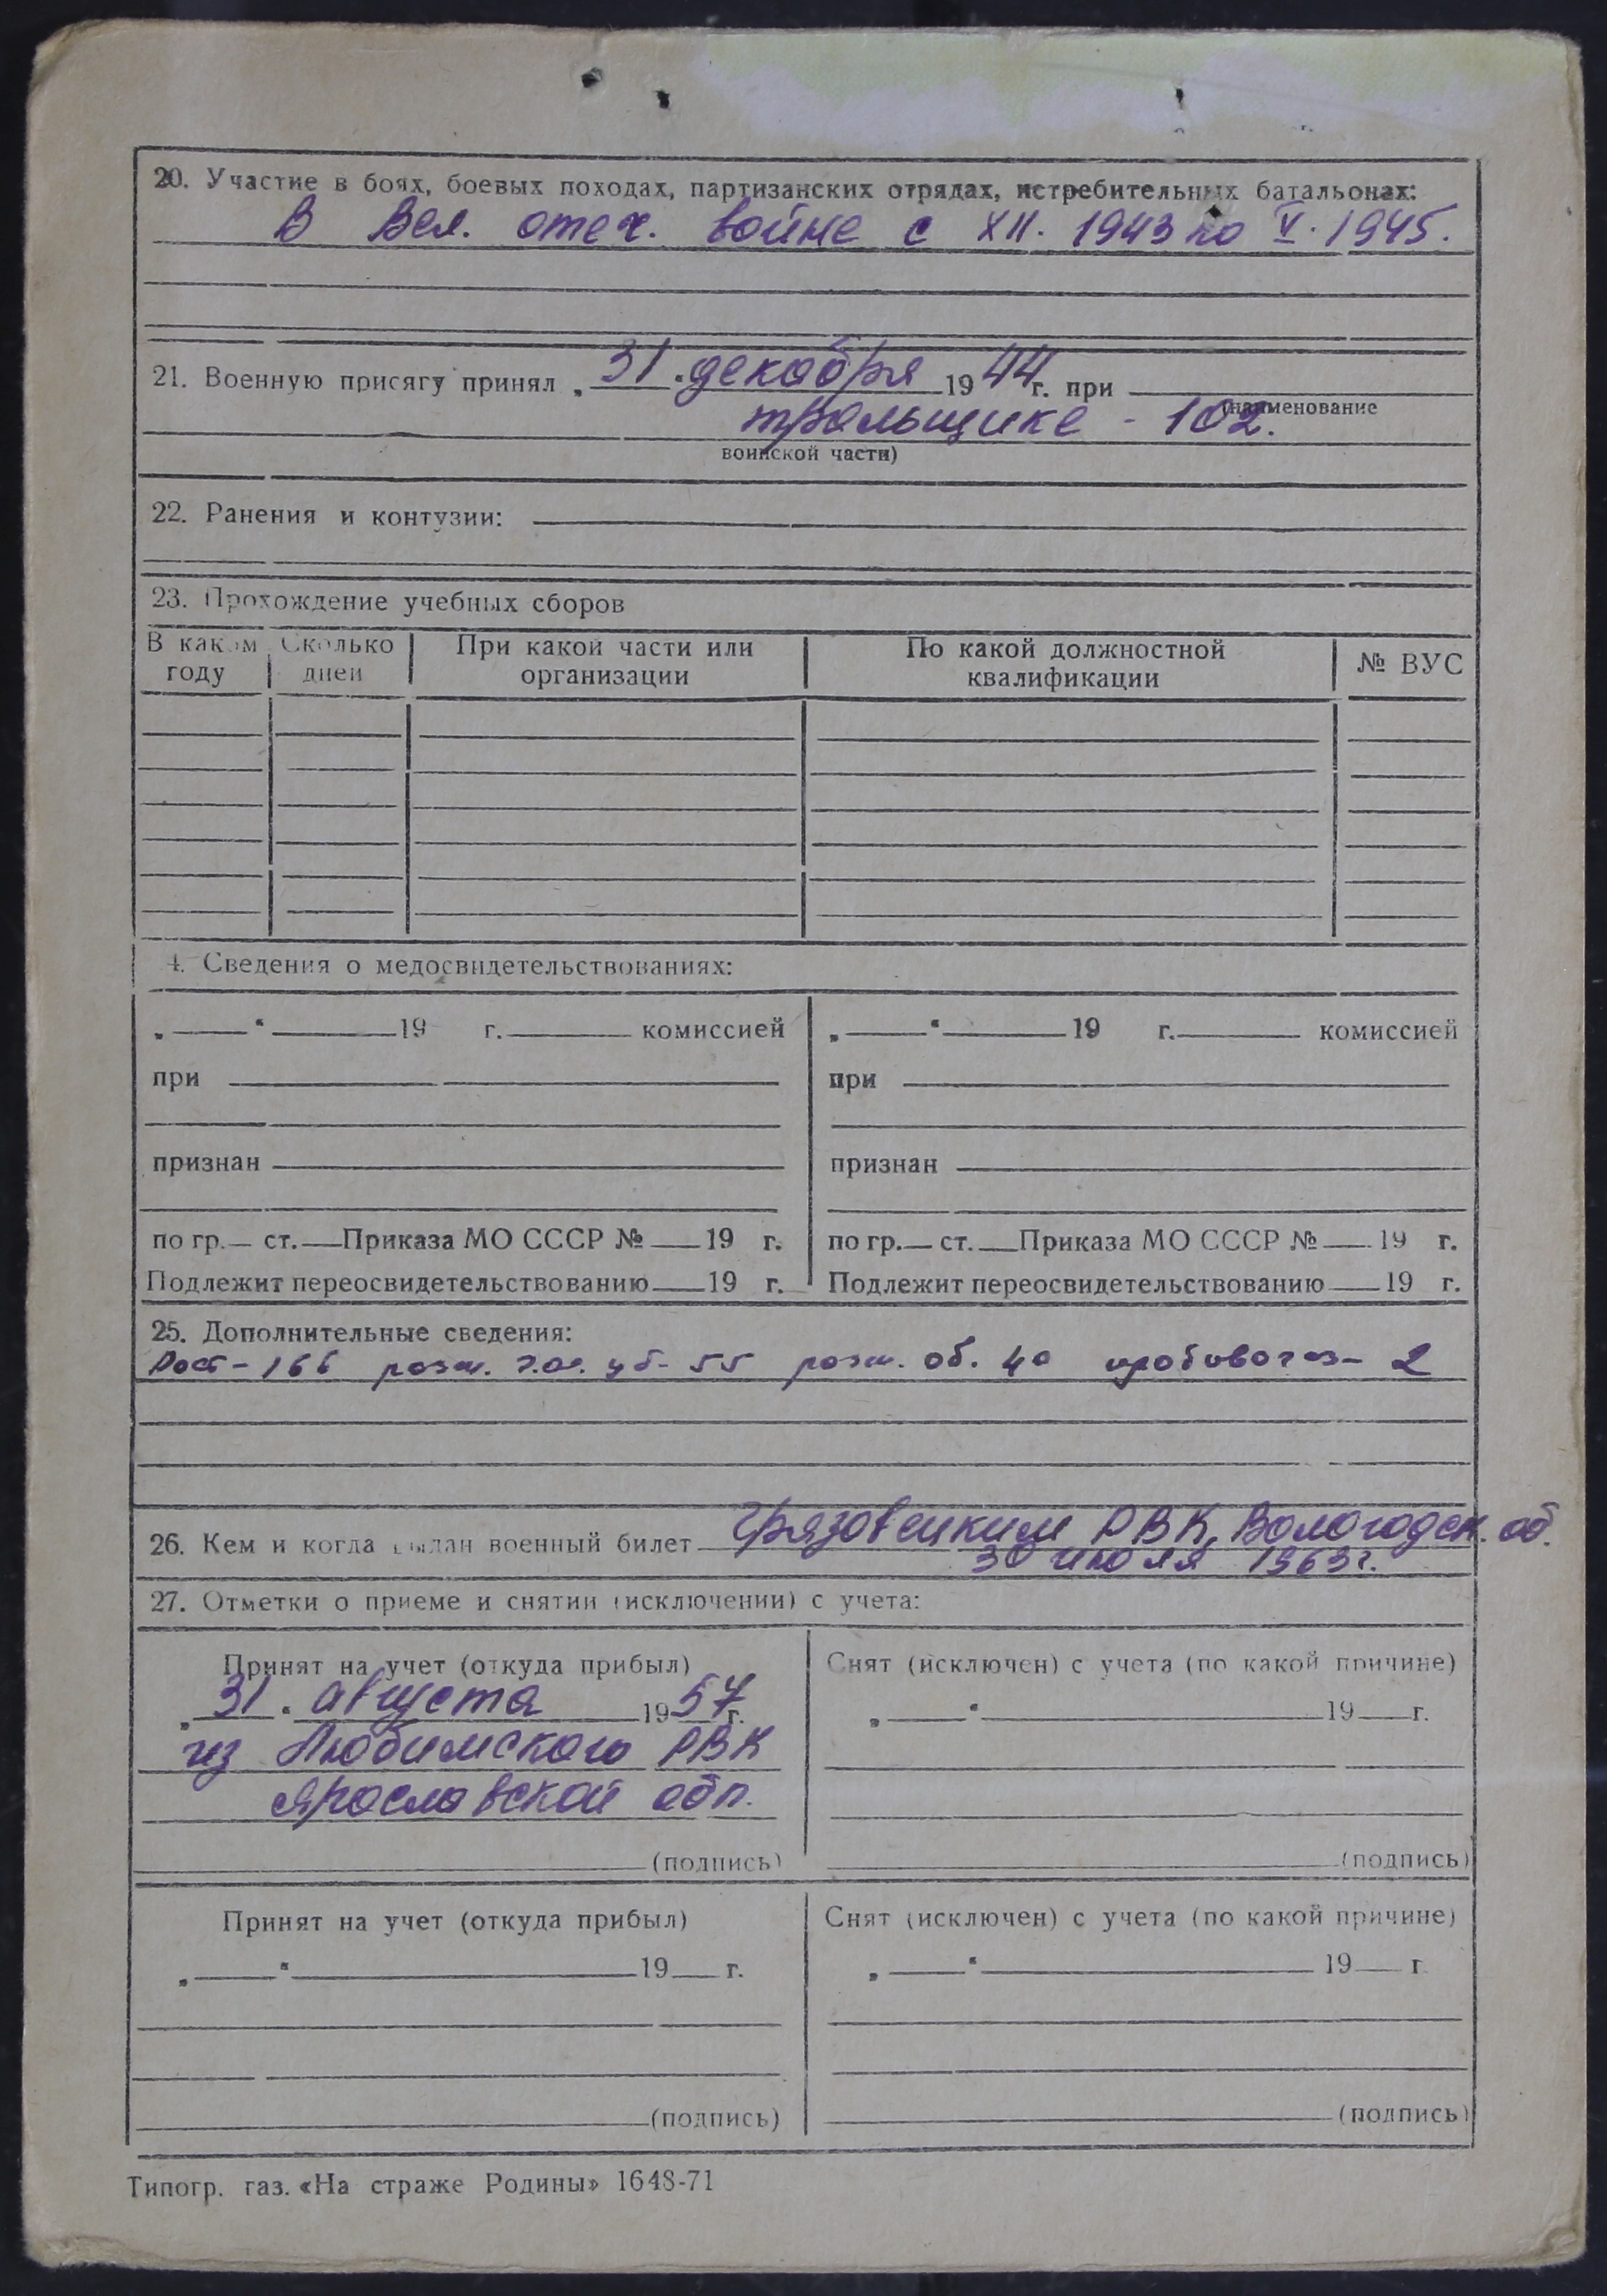 20. Участие в боях, боевых походах, партизанских отрядах, истребительных батальонах:
В Вел. отеч. войне с XII. 1943 по V. 1945.
21. Военную присягу принял „31“ декабря 1944 г. при
(наименование
тральщике - 102.
воинской части)
22. Ранения и контузии:
23. Прохождение учебных сборов
В каком году | Сколько дней | При какой части или организации | По какой должностной квалификации | № ВУС
4. Сведения о медосвидетельствованиях:
„ “ 19 г. комиссией
при
признан
по гр. ст. Приказа МО СССР № 19 г.
Подлежит переосвидетельствованию 19 г.
„ “ 19 г. комиссией
при
признан
по гр. ст. Приказа МО СССР № 19 г.
Подлежит переосвидетельствованию 19 г.
25. Дополнительные сведения:
Рост - 166 разм. уб - 55 разм. об. 40 - 2
26. Кем и когда выдан военный билет Грязовецким РВК, Вологодск. об.
30 июля 1963 г.
27. Отметки о приеме и снятии (исключении) с учета:
Принят на учет (откуда прибыл)
„31“ августа 1957 г.
из Любимского РВК
Ярославской обл.
(подпись)
Снят (исключен) с учета (по какой причине)
„ “ 19 г.
(подпись)
Принят на учет (откуда прибыл)
„ “ 19 г.
(подпись)
Снят (исключен) с учета (по какой причине)
„ “ 19 г
(подпись)
Типогр. газ. «На страже Родины» 1648-71